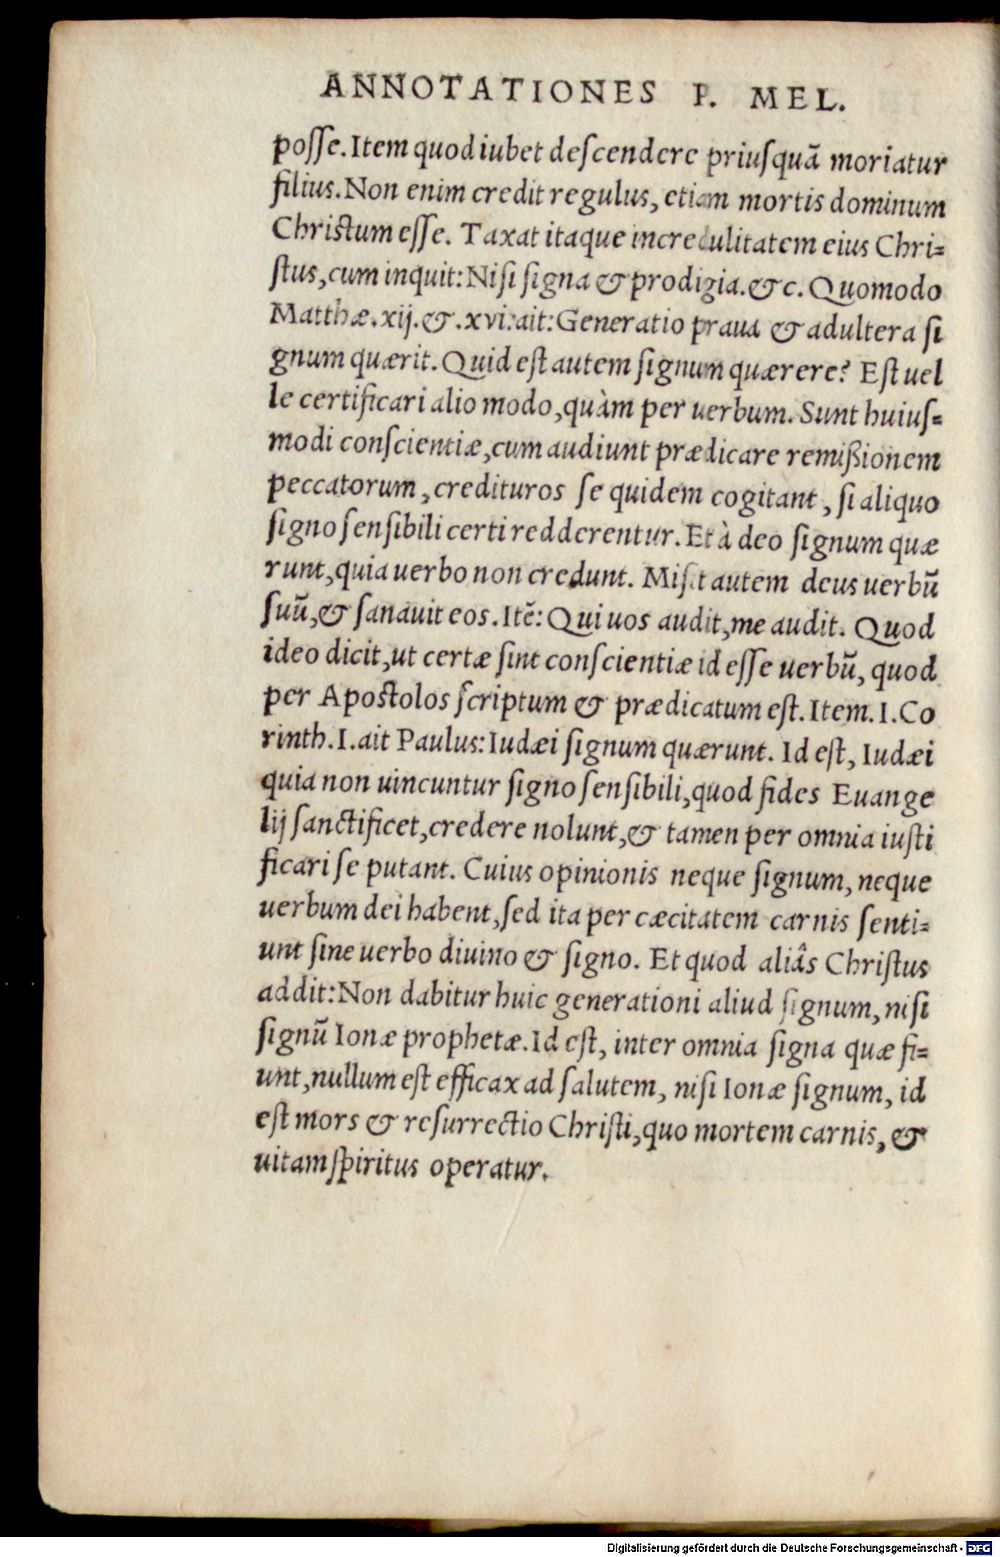 ANNOTATIONES P. MEL.
poſſe. Item quod iubet deſcendere priuſquã moriatur
filius. Non enim credit regulus, etiam mortis dominum
Chriſtum eſſe. Taxat itaque incredulitatem eius Chri=
ſtus, cum inquit: Niſi ſigna & prodigia. &c. Quomodo
Matthæ. xij. &. xvi. ait: Generatio praua & adultera ſi
gnum quærit. Quid eſt autem ſignum quærere? Eſt uel
le certificari alio modo, quàm per uerbum. Sunt huiuſ=
modi conſcientiæ, cum audiunt prædicare remißionem
peccatorum, credituros ſe quidem cogitant, ſi aliquo
ſigno ſenſibili certi redderentur. Et à deo ſignum quæ
runt, quia uerbo non credunt. Miſit autem deus uerbũ
ſuũ, & ſanauit eos. Itẽ: Qui uos audit, me audit. Quod
ideo dicit, ut certæ ſint conſcientiæ id eſſe uerbũ, quod
per Apoſtolos ſcriptum & prædicatum eſt. Item. I. Co
rinth. I. ait Paulus: Iudæi ſignum quærunt. Id eſt, Iudæi
quia non uincuntur ſigno ſenſibili, quod fides Euange
lij ſanctificet, credere nolunt, & tamen per omnia iuſti
ficari ſe putant. Cuius opinionis neque ſignum, neque
uerbum dei habent, ſed ita per cæcitatem carnis ſenti=
unt ſine uerbo diuino & ſigno. Et quod aliâs Chriſtus
addit: Non dabitur huic generationi aliud ſignum, niſi
ſignũ Ionæ prophetæ. Id eſt, inter omnia ſigna quæ fi=
unt, nullum eſt efficax ad ſalutem, niſi Ionæ ſignum, id
eſt mors & reſurrectio Chriſti, quo mortem carnis, &
uitam ſpiritus operatur.
Digitalisierung gefördert durch die Deutsche Forschungsgemeinschaft - DFG